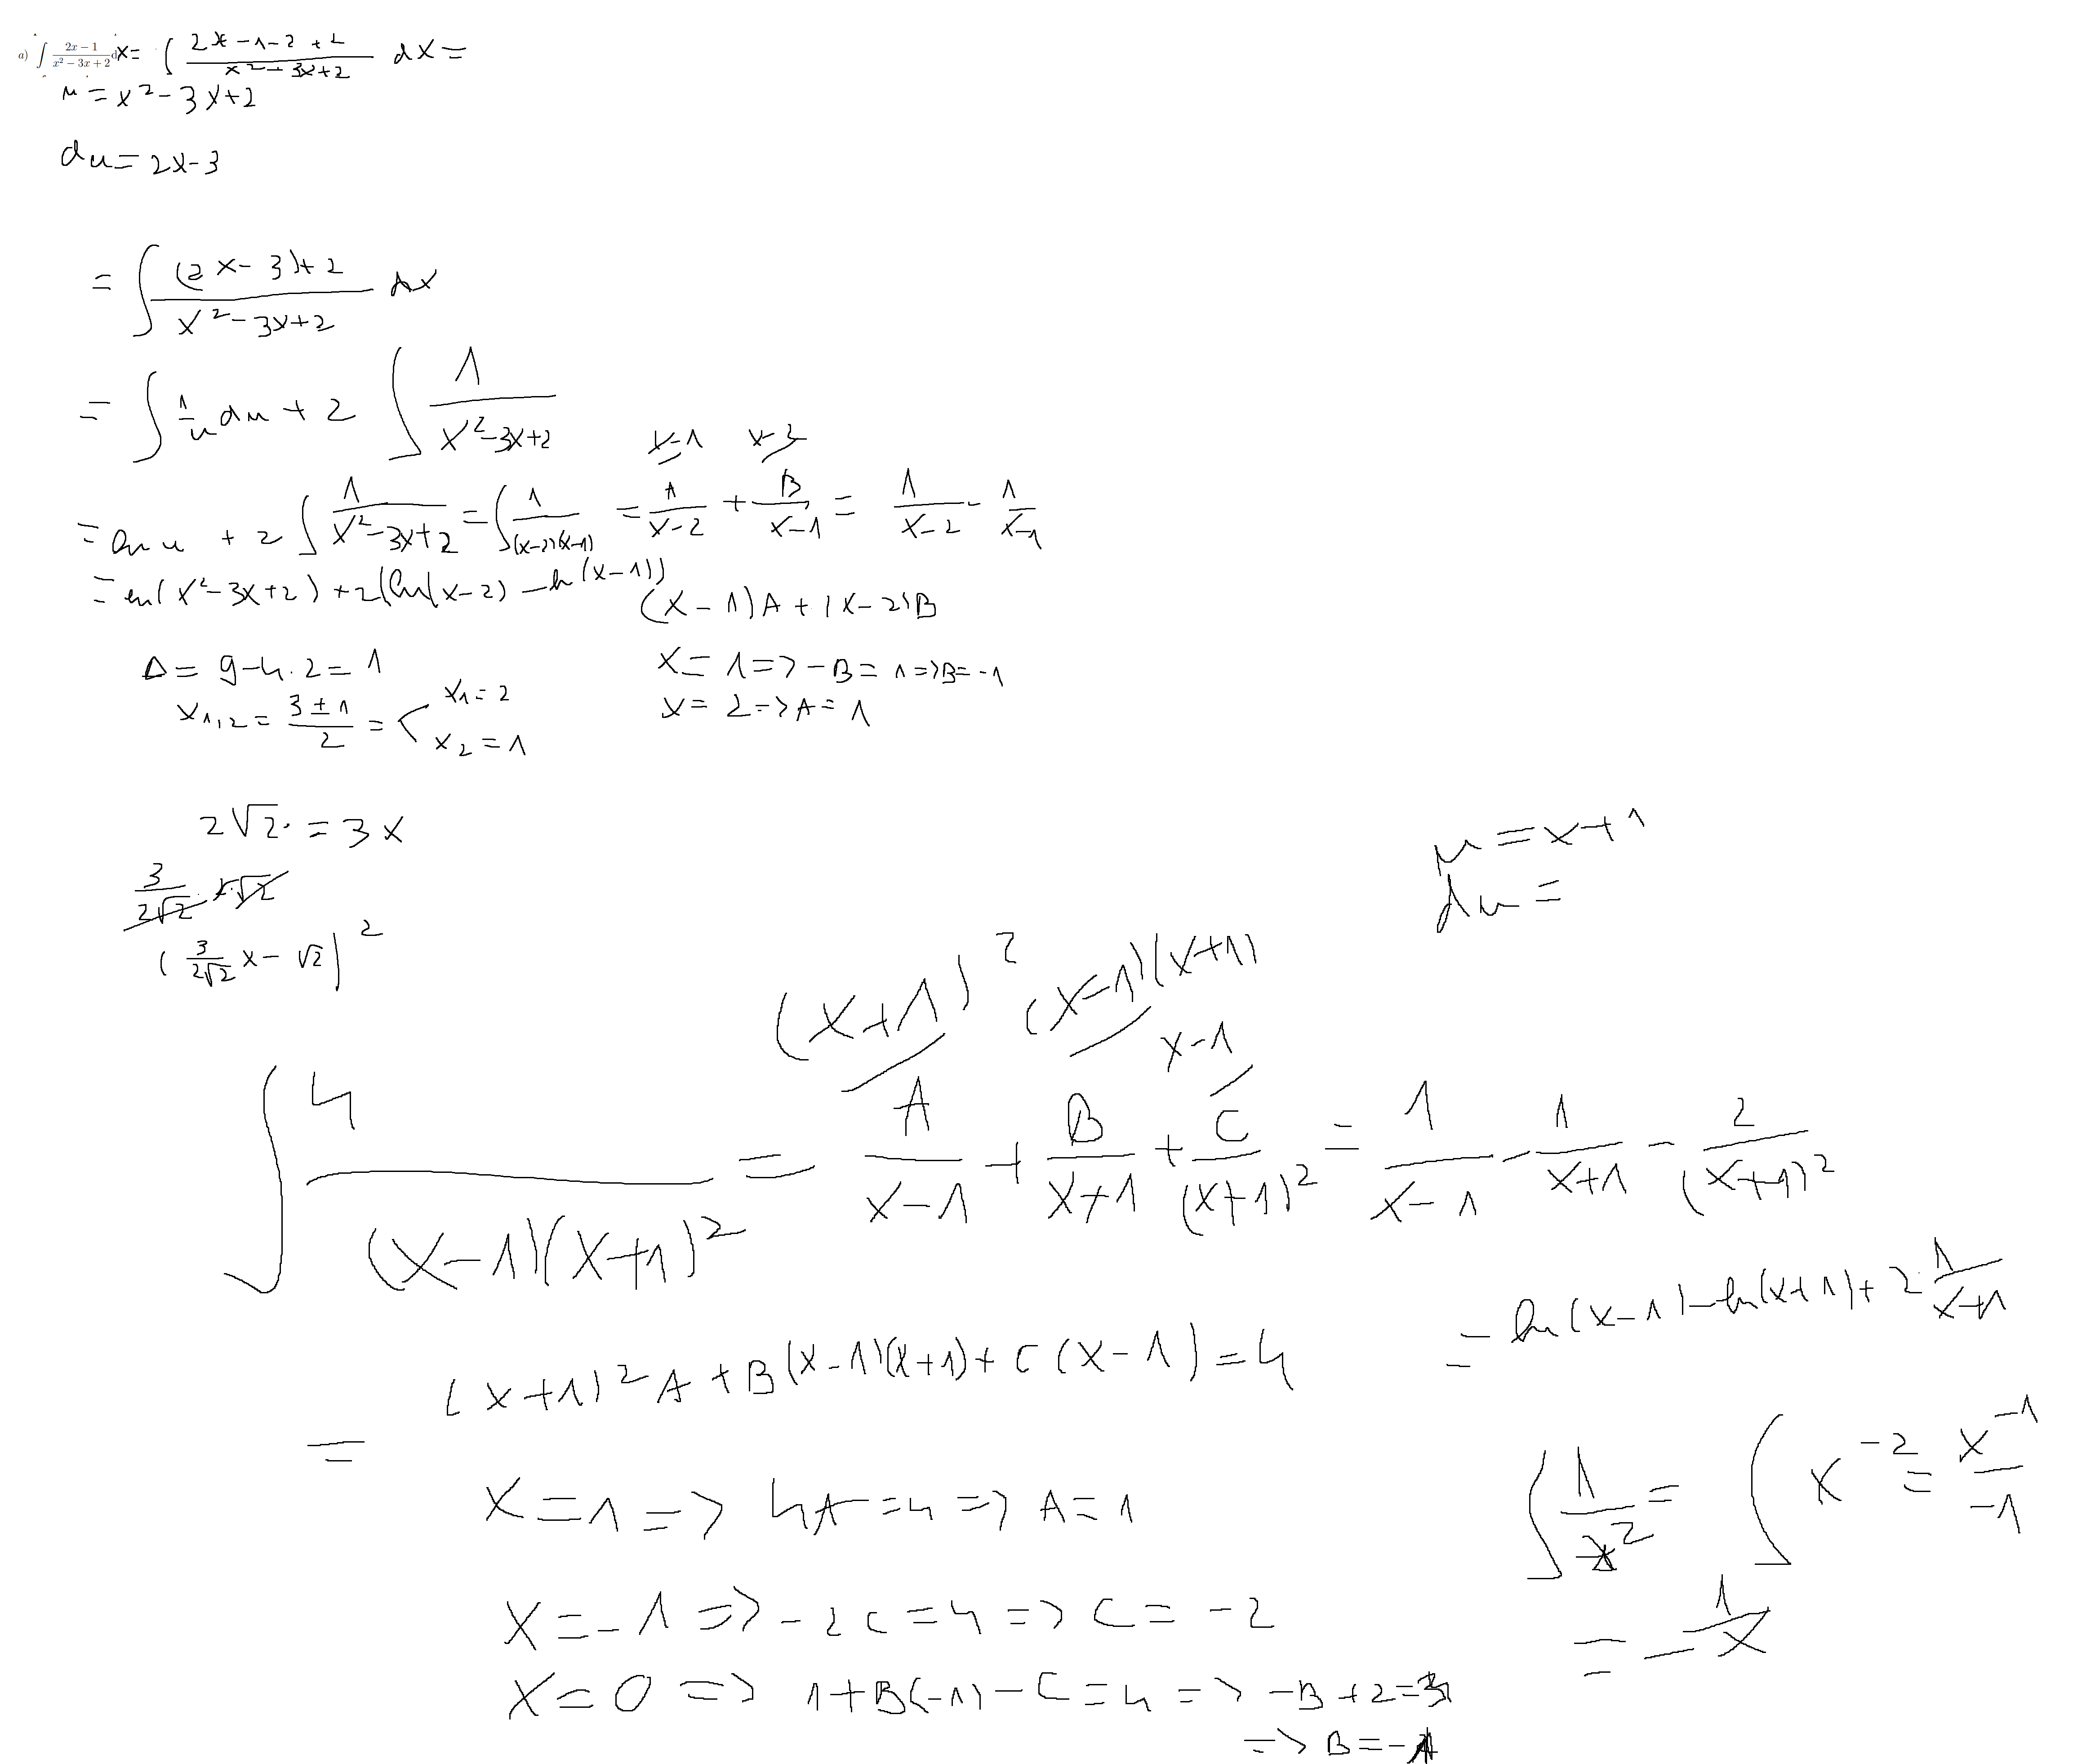 a) ∫ (2x − 1)/(x² − 3x + 2) dx = ∫ (2x − 1 − 2 + 2)/(x² − 3x + 2) dx =
u = x² − 3x + 2
du = 2x − 3
= ∫ ((2x − 3) + 2)/(x² − 3x + 2) dx
= ∫ 1/u du + 2 ∫ 1/(x² − 3x + 2)
x−1 x−2
= ln u + 2 ∫ 1/(x² − 3x + 2) = ∫ 1/((x−2)(x−1)) = A/(x−2) + B/(x−1) = 1/(x−2) − 1/(x−1)
= ln(x² − 3x + 2) + 2(ln(x−2) − ln(x−1))
(x − 1)A + (x − 2)B
Δ = 9 − 4·2 = 1
x = 1 => −B = 1 => B = −1
x₁,₂ = (3 ± 1)/2 = < x₁ = 2
x₂ = 1
x = 2 => A = 1
2√2· = 3x
(3/(2√2) x − √2)²
u = x + 1
du =
(x+1)² (x−1)(x+1)
x−1
∫ 4/((x−1)(x+1)²) = A/(x−1) + B/(x+1) + C/(x+1)² = 1/(x−1) − 1/(x+1) − 2/(x+1)²
= ln(x−1) − ln(x+1) + 2 1/(x+1)
= (x+1)² A + B(x−1)(x+1) + C(x−1) = 4
x = 1 => 4A = 4 => A = 1
∫ 1/x² = ∫ x⁻² = x⁻¹/−1
= −1/x
x = −1 => −2C = 4 => C = −2
x = 0 => 1 + B(−1) − C = 4 => −B + 2 = 3
=> B = −1